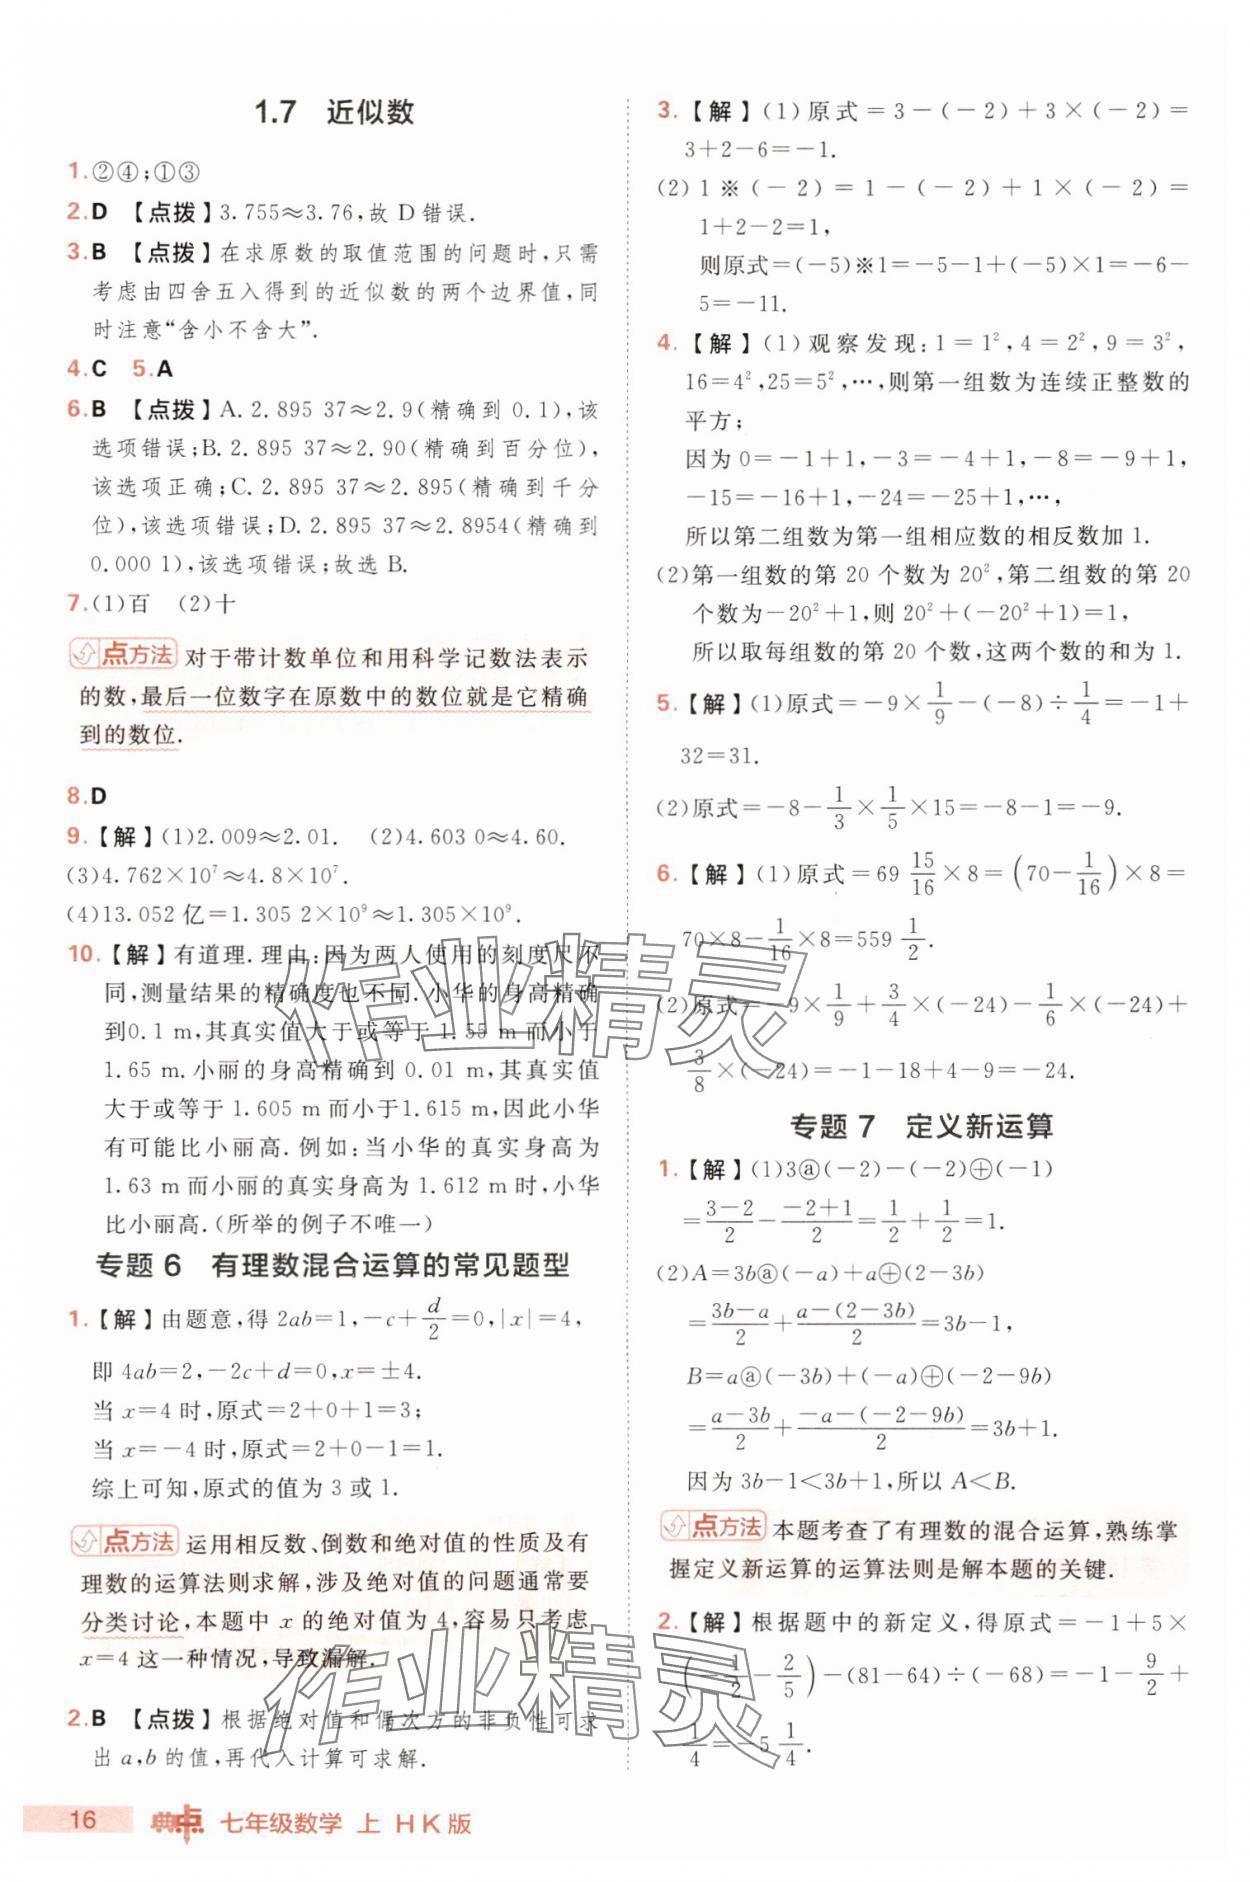 1.7 近似数
1.②④;①③
2.D 【点拨】3.755≈3.76,故 D 错误.
3.B 【点拨】在求原数的取值范围的问题时,只需
考虑由四舍五入得到的近似数的两个边界值,同
时注意“含小不含大”.
4.C 5.A
6.B 【点拨】A. 2.895 37≈2.9(精确到 0.1),该
选项错误;B. 2.895 37≈2.90(精确到百分位),
该选项正确;C. 2.895 37≈2.895(精确到千分
位),该选项错误;D. 2.895 37≈2.8954(精确到
0.000 1),该选项错误;故选 B.
7.(1)百 (2)十
点方法 对于带计数单位和用科学记数法表示
的数,最后一位数字在原数中的数位就是它精确
到的数位.
8.D
9.【解】(1)2.009≈2.01. (2)4.603 0≈4.60.
(3)4.762×10⁷≈4.8×10⁷.
(4)13.052 亿=1.305 2×10⁹≈1.305×10⁹.
10.【解】有道理.理由:因为两人使用的刻度尺不
同,测量结果的精确度也不同.小华的身高精确
到0.1 m,其真实值大于或等于 1.55 m 而小于
1.65 m.小丽的身高精确到 0.01 m,其真实值
大于或等于 1.605 m 而小于1.615 m,因此小华
有可能比小丽高.例如:当小华的真实身高为
1.63 m 而小丽的真实身高为 1.612 m 时,小华
比小丽高.(所举的例子不唯一)
专题 6 有理数混合运算的常见题型
1.【解】由题意,得 2ab=1,-c+d/2=0,|x|=4,
即 4ab=2,-2c+d=0,x=±4.
当 x=4 时,原式=2+0+1=3;
当 x=-4 时,原式=2+0-1=1.
综上可知,原式的值为 3 或 1.
点方法 运用相反数、倒数和绝对值的性质及有
理数的运算法则求解,涉及绝对值的问题通常要
分类讨论,本题中 x 的绝对值为 4,容易只考虑
x=4 这一种情况,导致漏解.
2.B 【点拨】根据绝对值和偶次方的非负性可求
出 a,b 的值,再代入计算可求解.
3.【解】(1)原式=3-(-2)+3×(-2)=
3+2-6=-1.
(2)1※(-2)=1-(-2)+1×(-2)=
1+2-2=1,
则原式=(-5)※1=-5-1+(-5)×1=-6-
5=-11.
4.【解】(1)观察发现:1=1²,4=2²,9=3²,
16=4²,25=5²,…,则第一组数为连续正整数的
平方;
因为 0=-1+1,-3=-4+1,-8=-9+1,
-15=-16+1,-24=-25+1,…,
所以第二组数为第一组相应数的相反数加 1.
(2)第一组数的第 20 个数为 20²,第二组数的第 20
个数为-20²+1,则 20²+(-20²+1)=1,
所以取每组数的第 20 个数,这两个数的和为 1.
5.【解】(1)原式=-9×1/9-(-8)÷1/4=-1+
32=31.
(2)原式=-8-1/3×1/5×15=-8-1=-9.
6.【解】(1)原式=69 15/16×8=(70-1/16)×8=
70×8-1/16×8=559 1/2.
(2)原式=-9×1/9+3/4×(-24)-1/6×(-24)+
3/8×(-24)=-1-18+4-9=-24.
专题 7 定义新运算
1.【解】(1)3ⓐ(-2)-(-2)⊕(-1)
=3-2/2-(-2+1)/2=1/2+1/2=1.
(2)A=3bⓐ(-a)+a⊕(2-3b)
=(3b-a)/2+(a-(2-3b))/2=3b-1,
B=aⓐ(-3b)+(-a)⊕(-2-9b)
=(a-3b)/2+(-a-(-2-9b))/2=3b+1.
因为 3b-1<3b+1,所以 A<B.
点方法 本题考查了有理数的混合运算,熟练掌
握定义新运算的运算法则是解本题的关键.
2.【解】根据题中的新定义,得原式=-1+5×
(-1/2-2/5)-(81-64)÷(-68)=-1-9/2+
1/4=-5 1/4.
16 典点 七年级数学 上 HK版
作业精灵
作业精灵